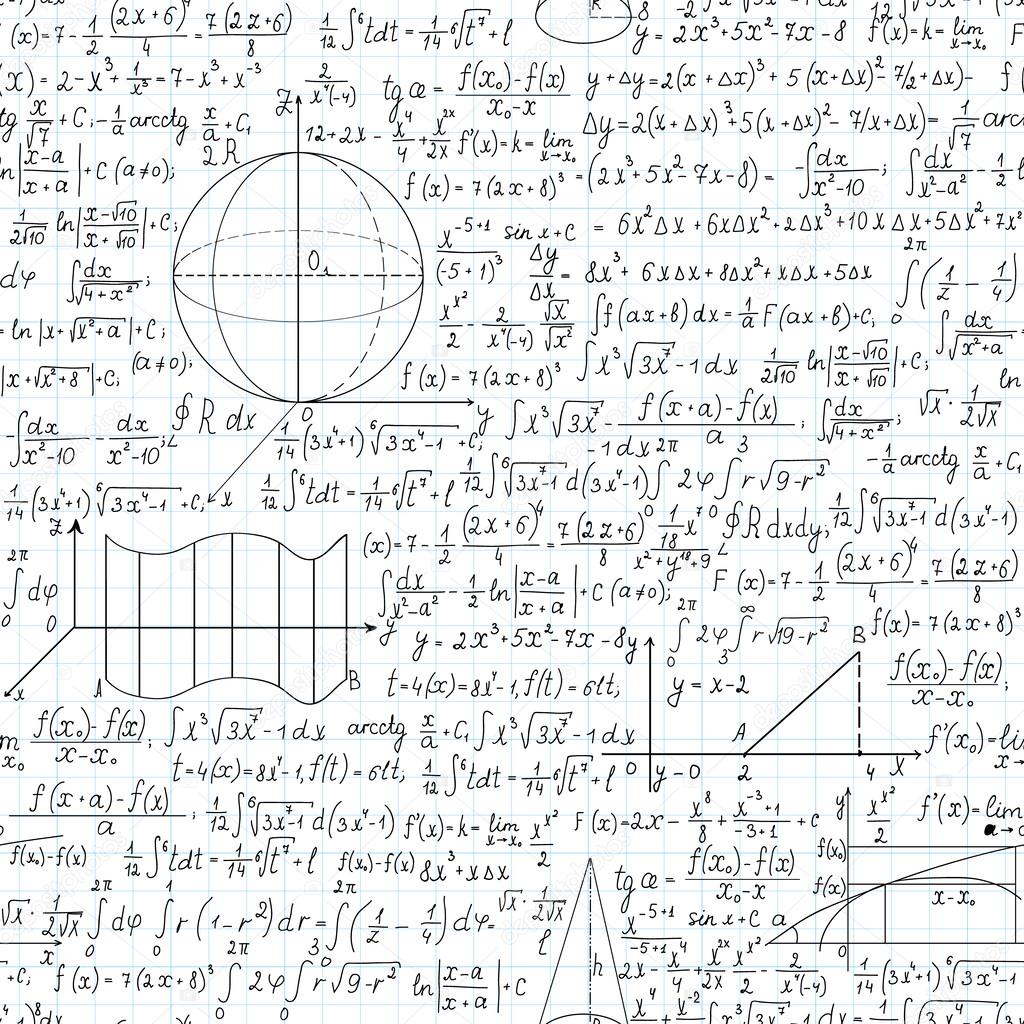 (x)=7-1/2 (2x+6)⁴/4 = 7(2z+6)/8
1/12 ∫⁶tdt = 1/14 ⁶√t⁷+l
y = 2x³+5x²-7x-8
f'(x)=k= lim x→x₀
(x) = 2-x³+1/x³=7-x³+x⁻³
2/x⁴(-4)
tg œ = f(x₀)-f(x)/x₀-x
y+Δy=2(x+Δx)³+5(x+Δx)² 7/2+Δx)-
tg x/√7 +C;-1/a arcctg x/a +C₁
2R
Z
12+2x - x⁴/4 + x²ˣ/2x f'(x)=k= lim x→x₀
Δy=2(x+Δx)³+5(x+Δx)²-7/x+Δx)= 1/√7
ln|x-a/x+a|+C (a≠0);
f(x) = 7(2x+8)³ =(2x³+5x²-7x-8) =
-∫dx/x²-10; ∫dx/x²-a² - 1/2
1/2√10 ln|x-√10/x+√10|+C;
x⁻⁵⁺¹/(-5+1)³ sin x+C
= 6x²Δx+6xΔx²+2Δx³+10xΔx+5Δx²+7x²
dφ ∫dx/√4+x²;
O₁
Δy/Δx = 8x³+ 6xΔx+8Δx²+xΔx+5Δx
2π ∫ 0 (1/z - 1/4)
= ln|x+√x²+a|+C;
xˣ²/2 - 2/x⁴(-4) √x/√x²
∫f(ax+b)dx=1/a F(ax+b)+C;
∫dx/√x²+a
(a≠0);
|x+√x²+8|+C;
f(x) = 7(2x+8)³
∫x³√3x⁷-1dx 1/2√10 ln|x-√10/x+√10|+C;
ln
∮Rdx
O y
∫x³√3x⁷- f(x+a)-f(x)/a; ∫dx/√4+x²; √x·1/2√x
-1dx
-∫dx/x²-10 - dx/x²-10;
1/14(3x⁴+1)⁶√3x⁴-1+C;
-1/a arcctg x/a +C₁
1/14(3x⁴+1)⁶√3x⁴-1+C; x
1/12∫⁶tdt=1/14⁶√t⁷+l
1/12∫⁶√3x⁷-1 d(3x⁴-1) 2π ∫ 0 2φ 3 ∫ 0 r√9-r²
Z
(x)=7-1/2 (2x+6)⁴/4 = 7(2z+6)/8
1/18 x⁷/x²+y¹⁸+9
∮Rdxdy; 1/12∫⁶√3x⁷-1 d(3x⁴-1)
2π ∫ 0 dφ
0
∫dx/x²-a² - 1/2 ln|x-a/x+a|+C (a≠0);
F(x)=7-1/2 (2x+6)⁴/4 = 7(2z+6)/8
y
y = 2x³+5x²-7x-8
y
2π ∫ 0 2φ ∞ ∫ 3 r√19-r²
B
f(x)=7(2x+8)³
x A B
t=4(x)=8x⁴-1, f(t) = 6lt;
y = x-2
f(x₀)-f(x)/x-x₀;
f(x₀)-f(x)/x-x₀; ∫x³√3x⁷-1dx arcctg x/a +C₁ ∫x³√3x⁷-1dx
A
f'(x₀)=li
t=4(x)=8x⁴-1, f(t) = 6lt; 1/12∫⁶tdt=1/14⁶√t⁷+l
0 y-0 2 4 x
f(x+a)-f(x)/a; 1/12∫⁶√3x⁷-1 d(3x⁴-1) f'(x)=k= lim x→x₀ xˣ²/2
F(x)=2x- x⁸/8 + x⁻³⁺¹/-3+1 +c
y xˣ²/2 f'(x)=lim a→0
f(x₀)-f(x)
1/12∫⁶tdt=1/14⁶√t⁷+l
f(x₀)-f(x) 8x³+xΔx
tg œ = f(x₀)-f(x)/x₀-x
f(x₀)
f(x)
x-x₀
√x·1/2√x 2π ∫ 0 dφ 1 ∫ 0 r(1-r²)dr= 2π ∫ 0 (1/z - 1/4)dφ= √x·1/2√x
x⁻⁵⁺¹/-5+1 sin x+C a
x
l
h
0
+C; f(x) = 7(2x+8)³ 2π ∫ 0 2φ 3 ∫ 0 r√9-r² ln|x-a/x+a|+C
2x- x⁴/4 + x²ˣ/2x xˣ²/2 - 2/x⁴(-4)
1/14(3x⁴+1)⁶√3x⁴-1